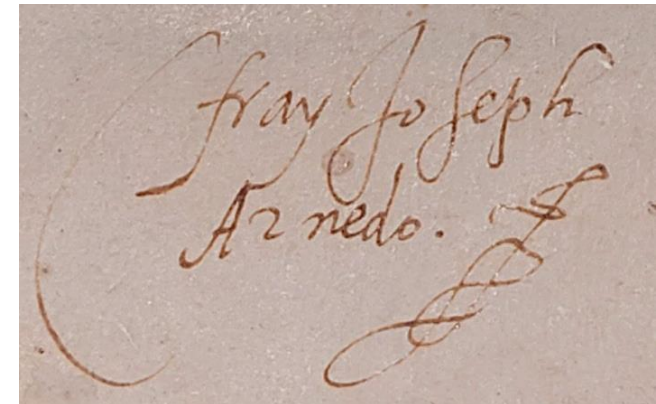 fray Joseph
Arnedo.